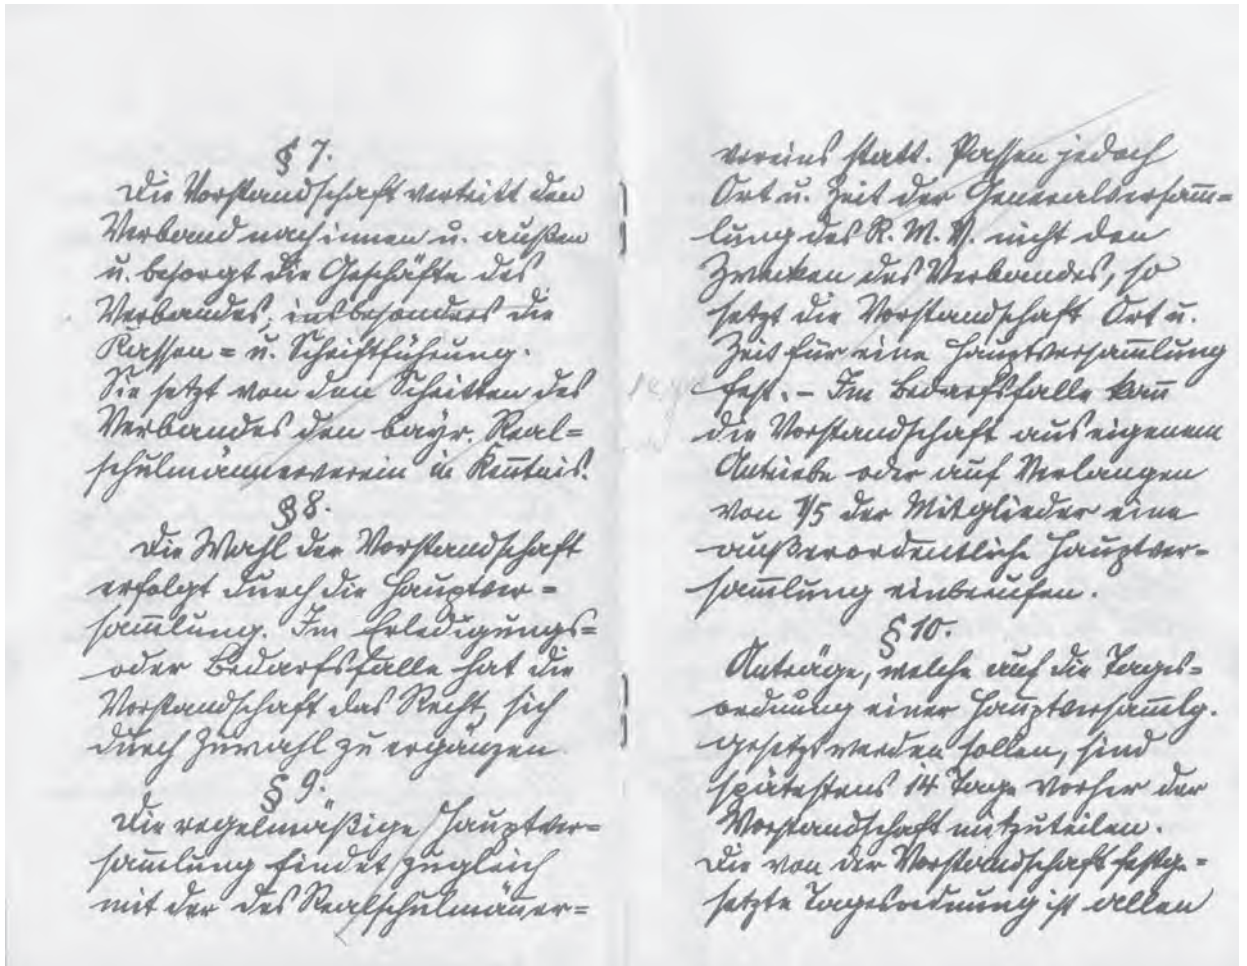 § 7.
Die Vorstandschaft vertritt den
Verband nach innen u. außen
u. besorgt die Geschäfte des
Verbandes, insbesonders die
Kassen= u. Schriftführung.
Sie setzt von den Schritten des
Verbandes den bayr. Real=
schulmännerverein in Kenntnis.
§ 8.
Die Wahl der Vorstandschaft
erfolgt durch die Hauptver=
sam̄lung. Im Erledigungs=
oder Bedarfsfalle hat die
Vorstandschaft das Recht, sich
durch Zuwahl zu ergänzen.
§ 9.
Die regelmäßige Hauptver=
sam̄lung findet zugleich
mit der des Realschulmän̄er=
vereins statt. Passen jedoch
Ort u. Zeit der Generalversam̄=
lung des R. M. V. nicht den
Zwecken des Verbandes, so
setzt die Vorstandschaft Ort u.
Zeit für eine Hauptversam̄lung
fest. – Im Bedarfsfalle kan̄
die Vorstandschaft aus eigenem
Antriebe oder auf Verlangen
von 1/5 der Mitglieder eine
außerordentliche Hauptver=
sam̄lung einberufen.
§ 10.
Anträge, welche auf die Tages=
ordnung einer Hauptversam̄lg.
gesetzt werden sollen, sind
spätestens 14 Tage vorher der
Vorstandschaft mitzuteilen.
Die von der Vorstandschaft festge=
setzte Tagesordnung ist allen